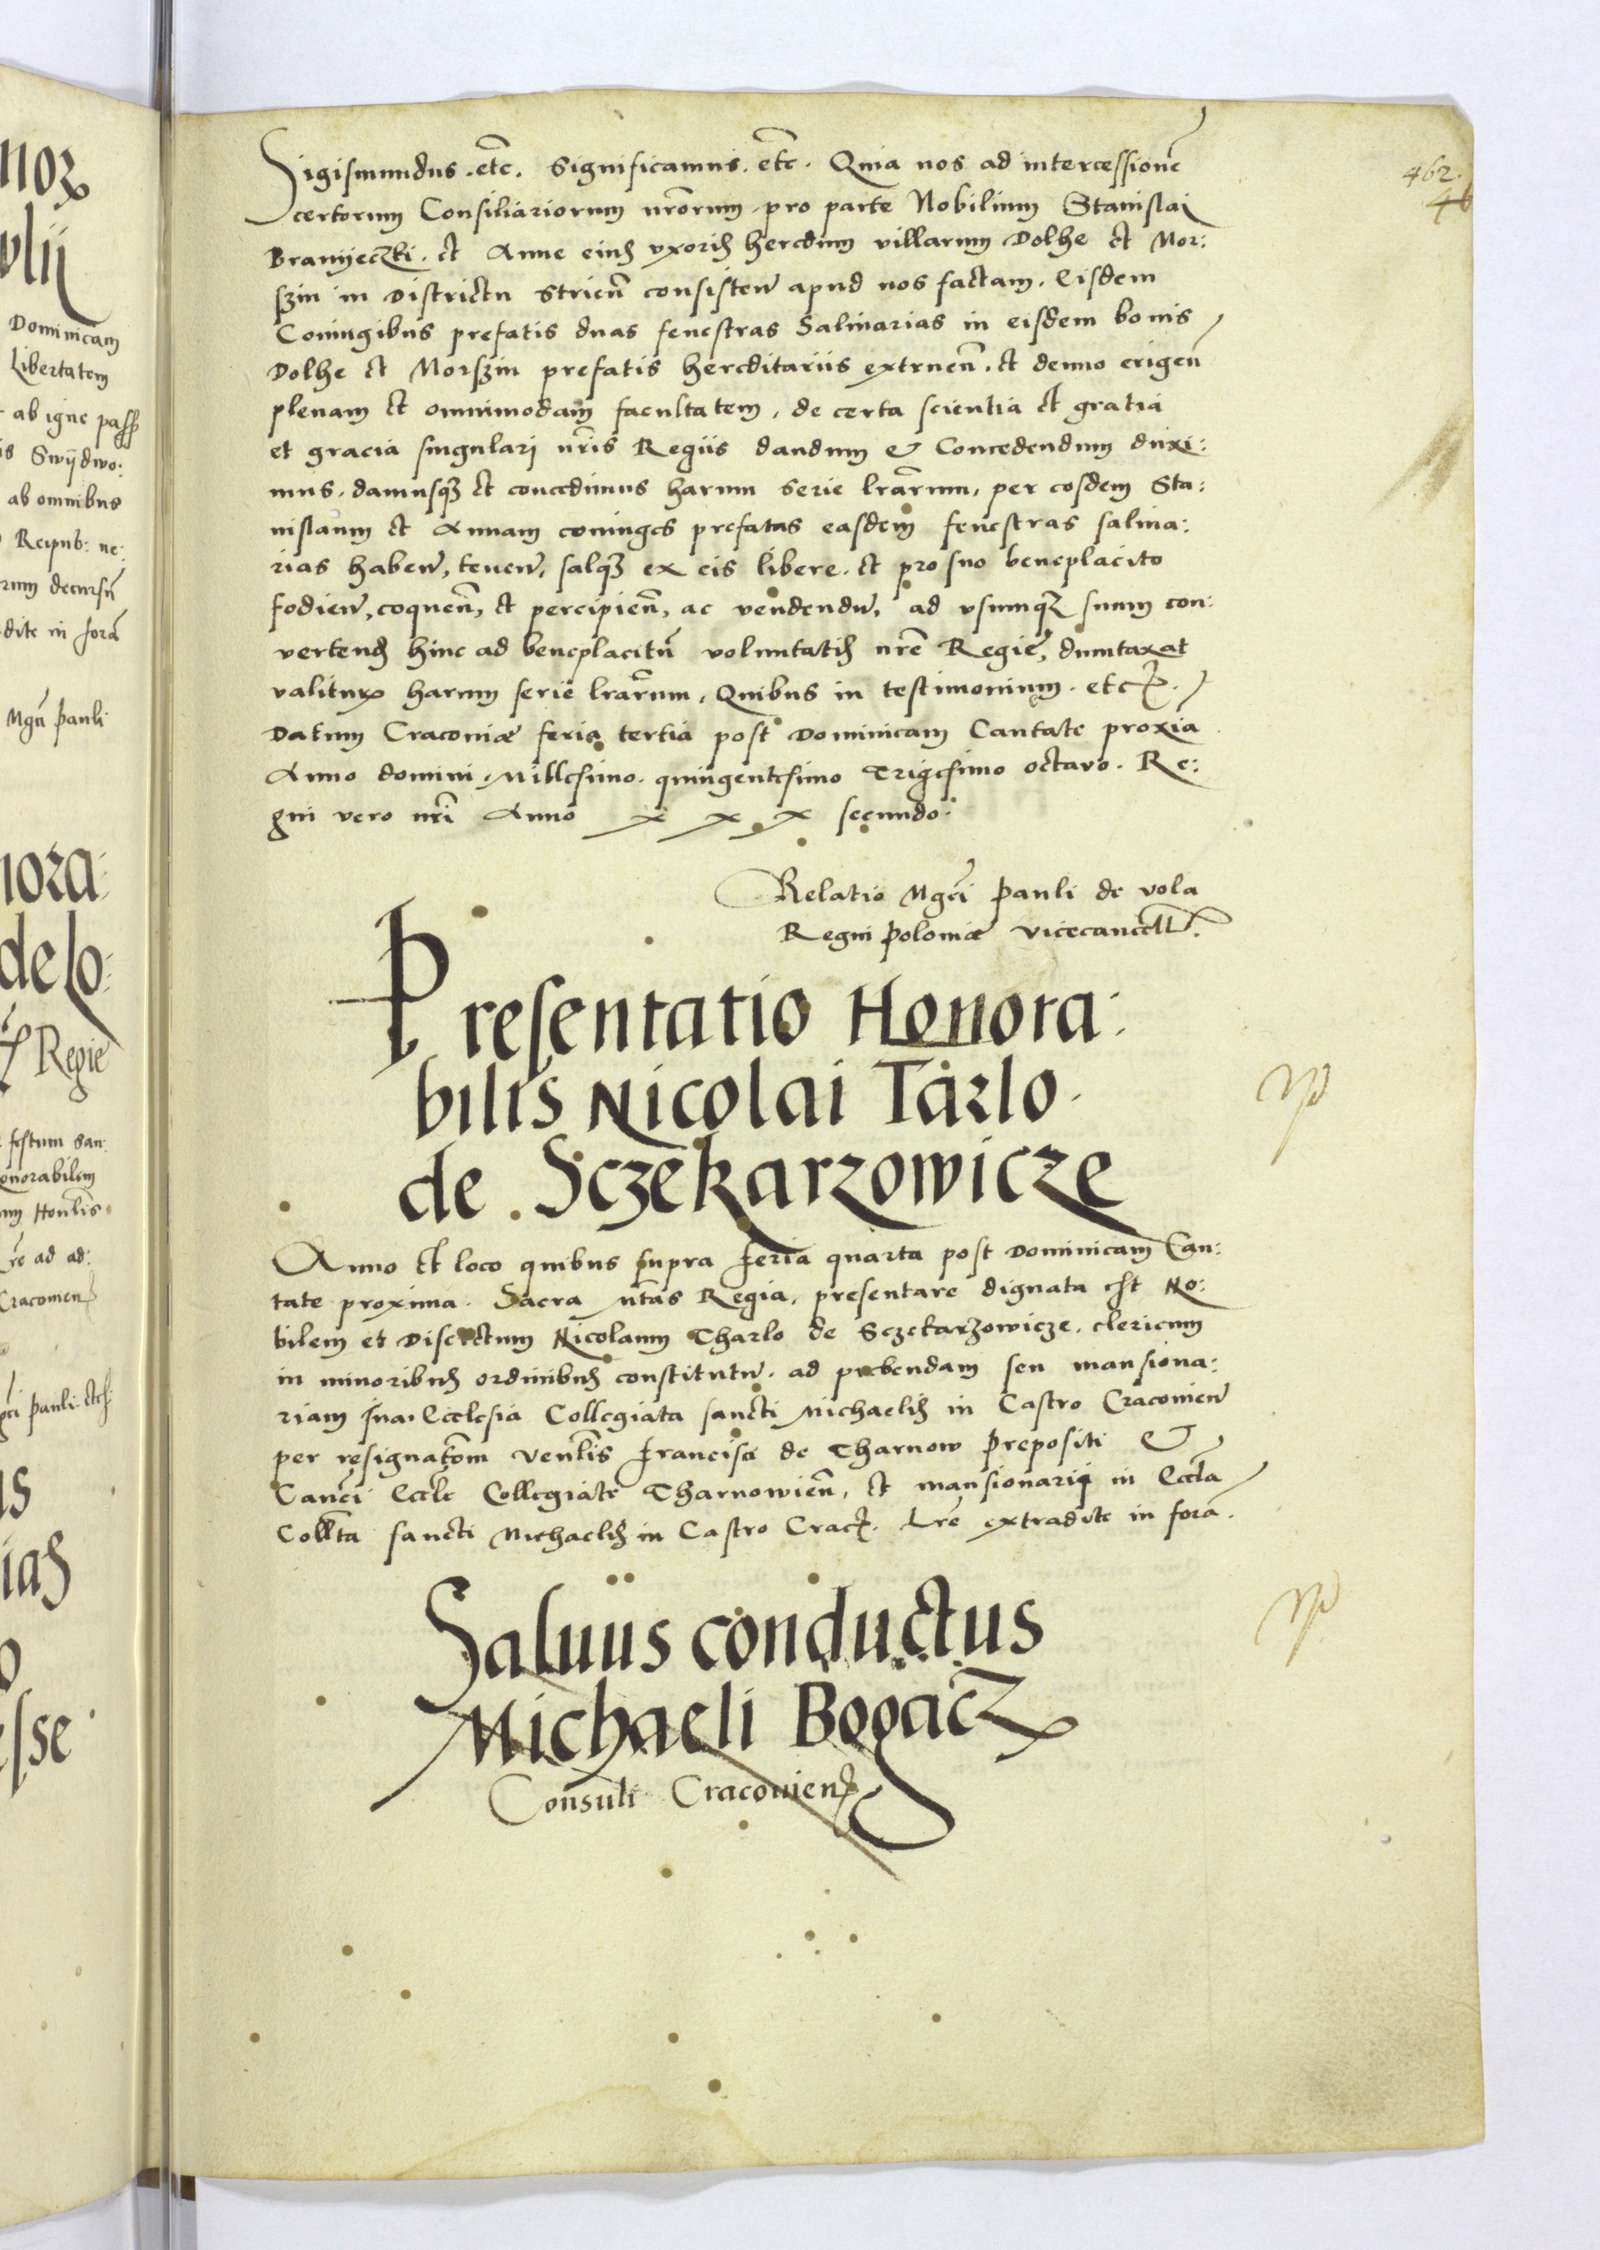 462.
46
Sigismundus. etc̄. Significamus. etc̄. Quia nos ad intercessionē
certorum Consiliariorum nr̄orum. pro parte Nobilium Stanislai
et Anne eius uxoris heredum villarum Dolhe et Mor:
szin in Districtu Strien̄ consisten̄ apud nos factam. Eisdem
Coniugibus prefatis duas fenestras Salinarias in eisdem bonis
Dolhe et Morszin prefatis hereditariis extruen̄. et denuo erigen̄
plenam et omnimodam facultatem, de certa scientia et gratia
et gracia singulari nr̄is Regiis dandum & Concedendum duxi:
mus. damusq3 et concedimus harum serie lr̄arum, per eosdem Sta:
nislaum et Annam coniuges prefatas easdem fenestras salina:
rias haben̄, tenen̄, salq3 ex eis libere. et pro suo beneplacito
fodien̄, coquen̄, et percipien̄, ac vendendum, ad usumq3 suum con:
verten̄ hinc ad beneplacitū voluntatis nr̄e Regie, dumtaxat
valitur harum serie lr̄arum, Quibus in testimonium. etc.
Datum Craconiæ feria tertia post Dominicam Cantate proxīa
Anno domini, Millesimo. quingentesimo Trigesimo octavo. Re:
gni vero nr̄i Anno x x x secundo.
Relatio Mgc̄i Pauli de vola
Regni Poloniæ vicecancell.
Presentatio Honora:
bilis Nicolai Tarlo.
de Sczekarzowicze
Anno et loco quibus supra feria quarta post Dominicam Can:
tate proxima. Sacra Mtas Regia, presentare dignata est No:
bilem et Discretum Nicolaum Tharlo de Sczekarzowicze. clericum
in minoribus ordinibus constitutum. ad prebendam seu mansiona:
riam sua. Ecclesia Collegiata sancti Michaelis in Castro Craconien̄
per resignatōm Venlis Francisci de Tharnow Prepositi &
Canc̄i Eccle Collegiate Tharnowien̄, et mansionarii in Eccla
Collta sancti Michaelis in Castro Crac. Lr̄e extradite in forā.
Salvus conductus
Michaeli Bogacz
Consuli Craconien